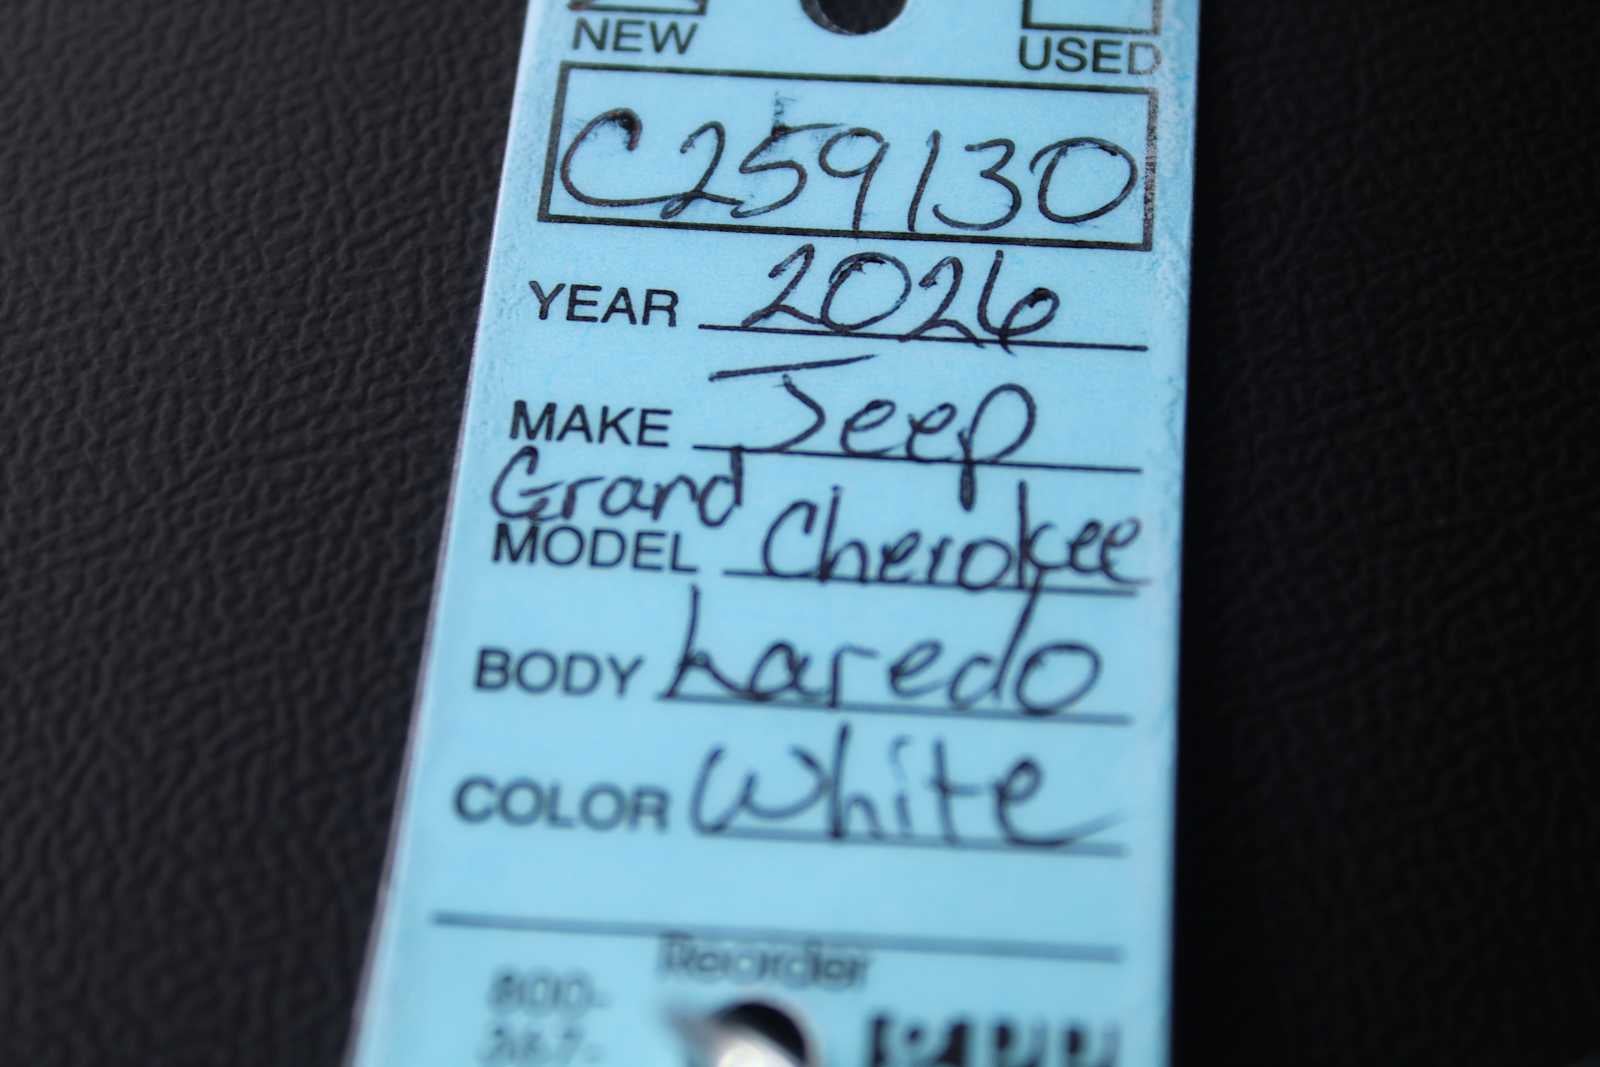 NEW USED
C259130
YEAR 2026
MAKE Jeep
Grand
MODEL Cherokee
BODY Laredo
COLOR White
Reorder
800-
367-